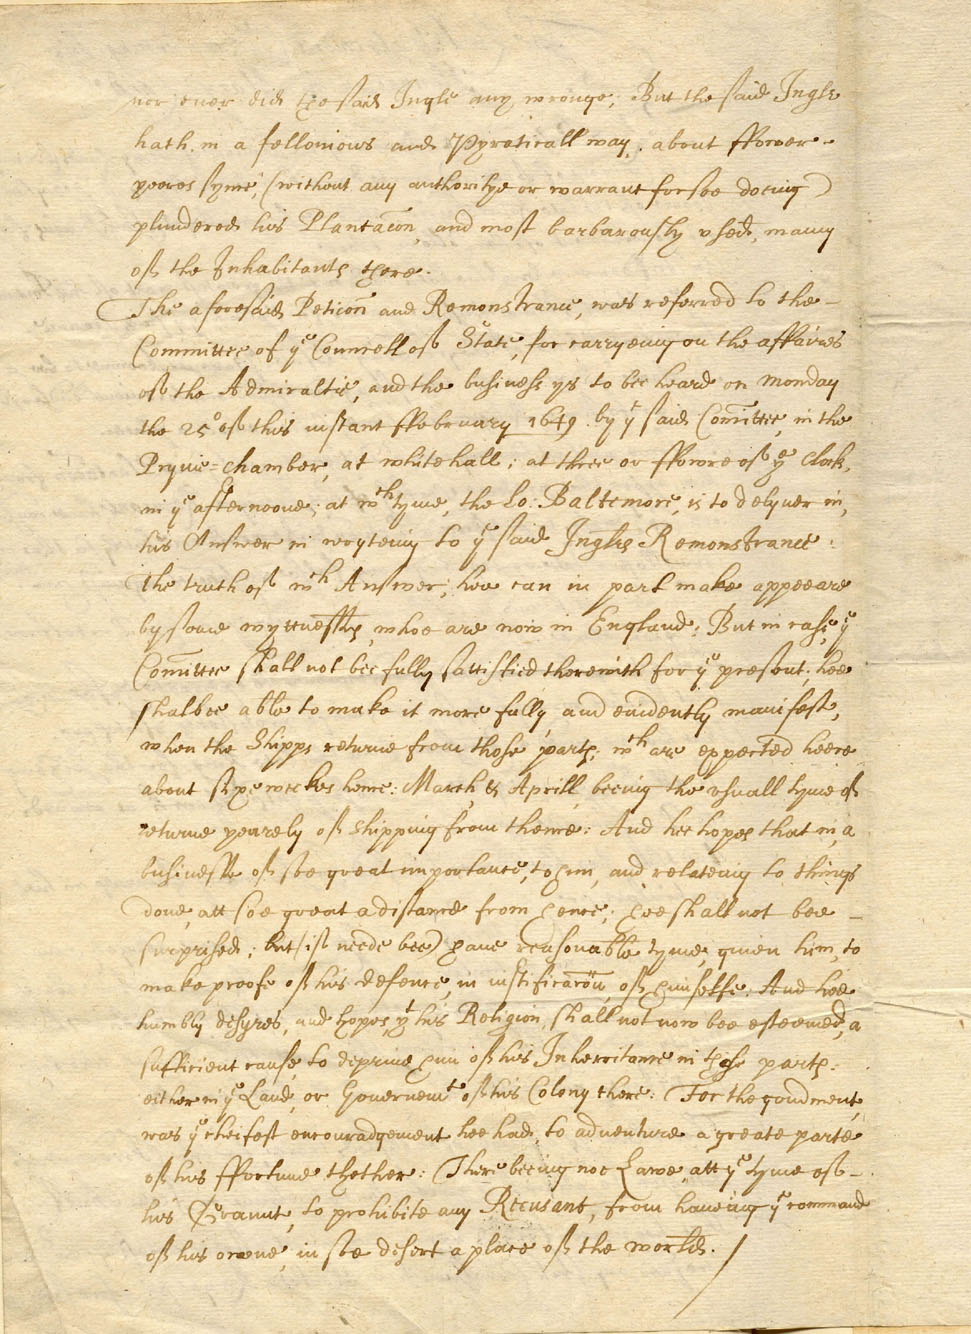 nor ever did the said Ingle any wronge; But the said Ingle
hath in a fellonious and Pyraticall way, about ffower
yeeres synce, (without any authoritye or warrant for soe doeing)
plundered his Plantac̃on, and most barbarously vsed, many
off the Inhabitants there.
The aforesaid Petic̃on and Remonstrance, was referred to the
Committee of yͤ Councell off State, for carryeing on the affaires
off the Admiraltie, and the business ys to bee heard on Monday
the 25ᵒ off this instant ffebruary 1649 by yͤ said Com̃ittee, in the
Pryuie=chamber, at whitehall; at three or ffowre off yͤ Clock,
in yͤ afternoone; at wᶜʰ tyme, the Lo: Baltemore, is to delyuer in,
his Answer in wryteing to yͤ said Ingles Remonstrance:
The truth off wᶜʰ Answer, hee can in part make appeeare
by some wyttnesses, whoe are now in England; But in case, yͤ
Com̃ittee shall not bee fully sattisfied therewith for yͤ present, hee
shalbee able to make it more fully and euidently manifest,
when the Shipps returne from those parts, wᶜʰ are expected heere
about sixe weekes hence: March, & Aprill, beeing the vsuall tyme off
returne yearely off shipping from thence: And hee hopes that in, a
businesse off soe great importance, to him, and relateing to things
done, att soe great a distance from hence; hee shall not bee
surprised; but (iff neede bee) haue reasonable tyme, giuen him, to
make proofe off his defence, in iustificac̃on, off himselffe: And hee
humbly desyres, and hopes, yͭ his Religion shall not now bee esteemed, a
sufficient cause, to depriue him off his Inherritance in those parts
either in yͤ Land, or Gouernemᵗ off his Colony there: For the
was yͤ cheifest encouradgement hee had, to aduenture a greate parte
off his ffortune thether: There beeing noe Lawe, att yͤ tyme off
his Graunt, to prohibite any Recusant, from haueing yͤ command
off his owne, in soe desert a place off the world. /